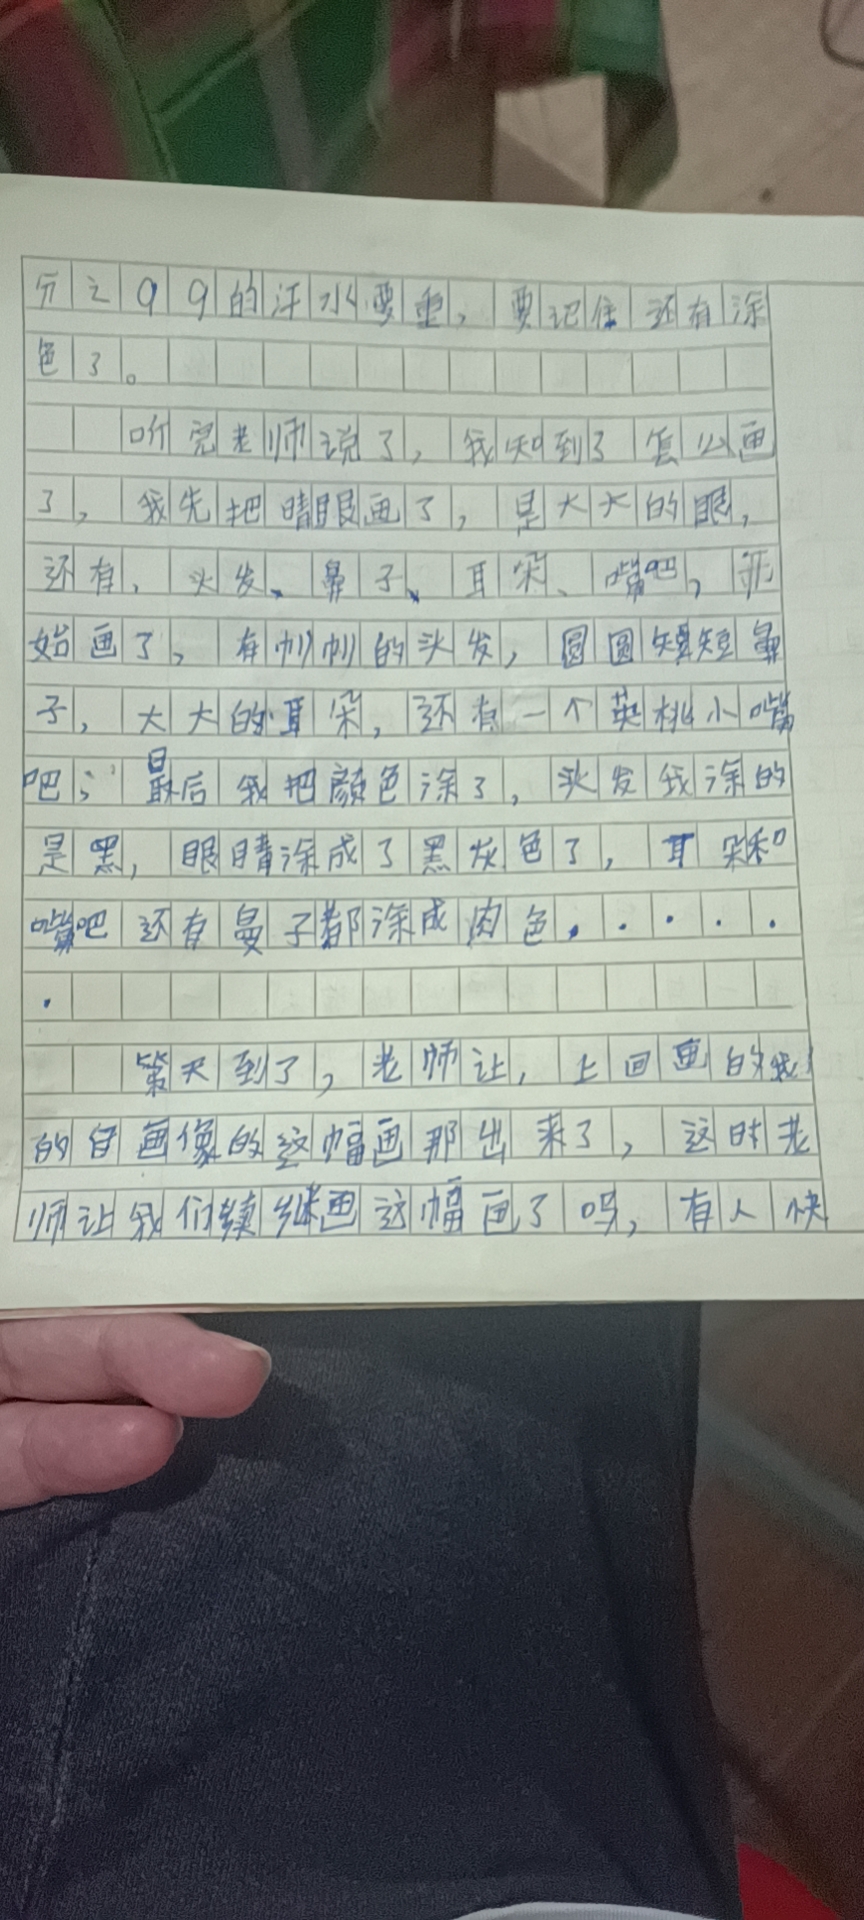 分之99的汗水要重，要记住还有涂
色了。
听完老师说了，我知到了怎么画
了，我先把晴眼画了，是大大的眼，
还有、头发、鼻子、耳朵、嘴吧，
始画了，有的头发，圆圆短短鼻
子，大大的耳朵，还有一个英桃小嘴
吧；最后我把颜色涂了，头发我涂的
是黑，眼晴涂成了黑灰色了，耳朵和
嘴吧还有子都涂成肉色．．．．．
．
第天到了，老师让，上回画的我
的自画像的这幅画那出来了，这时老
师让我们续继画这幅画了吗，有人快